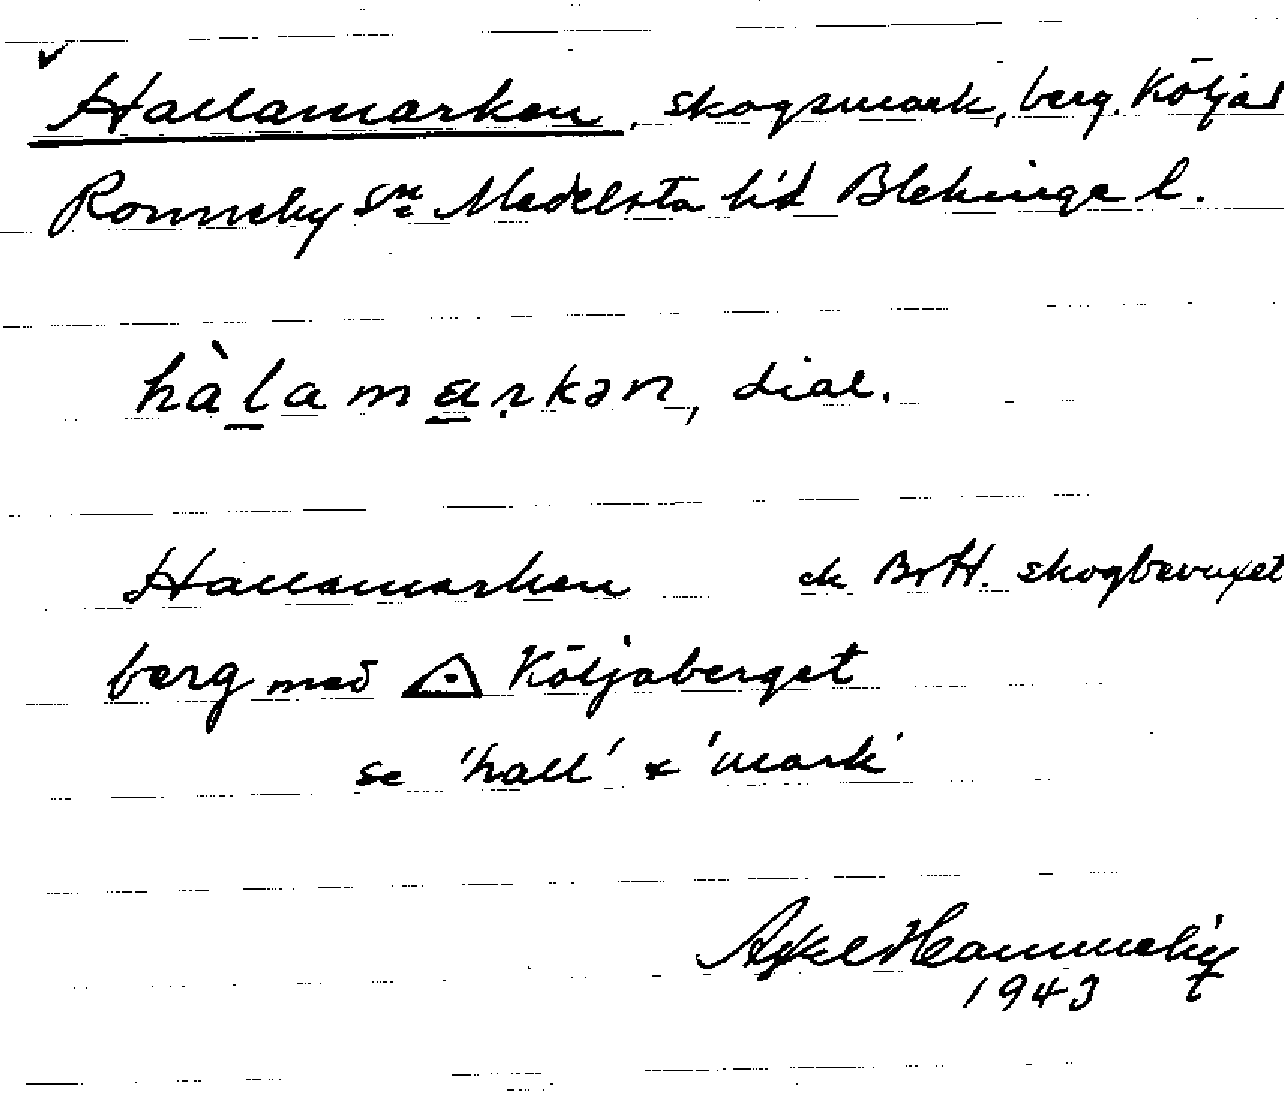 Hallamarken, skogsmark, berg. Köljas
Ronneby sn Medelsta hd Blekinge l.
hàlamarkən, dial.
Hallamarken ek skogbevuxet
berg med Köljaberget
se 'hall' & 'mark'
Axel
1943